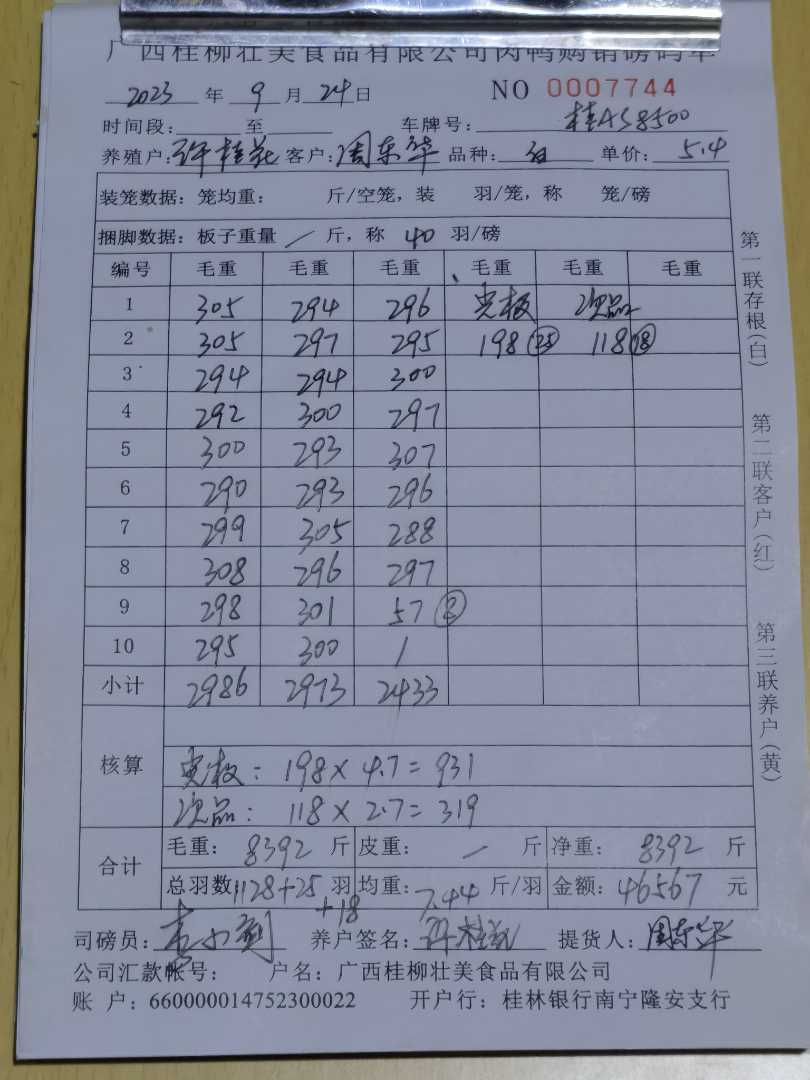 广西桂柳壮美食品有限公司肉鸭购销磅码单
2023 年 9 月 24 日 NO 0007744
时间段: 至 车牌号: 桂AS8500
养殖户: 许桂花 客户: 周东华 品种: 白 单价: 5.4
装笼数据: 笼均重: 斤/空笼, 装 羽/笼, 称 笼/磅
捆脚数据: 板子重量 / 斤, 称 40 羽/磅
编号 毛重 毛重 毛重 毛重 毛重 毛重
1 305 294 296 光板 次品
2 305 297 295 198 (25) 118 (18)
3 294 294 300
4 292 300 297
5 300 293 307
6 290 293 296
7 299 305 288
8 308 296 297
9 298 301 57 (8)
10 295 300 /
小计 2986 2973 2433
核算
光板: 198×4.7=931
次品: 118×2.7=319
合计
毛重: 8392 斤 皮重: / 斤 净重: 8392 斤
总羽数 1128+25 羽 均重: 7.44 斤/羽 金额: 46567 元
+18
司磅员: 养户签名: 许桂花 提货人: 周东华
公司汇款帐号: 户名: 广西桂柳壮美食品有限公司
账 户: 660000014752300022 开户行: 桂林银行南宁隆安支行
第一联存根(白)
第二联客户(红)
第三联养户(黄)